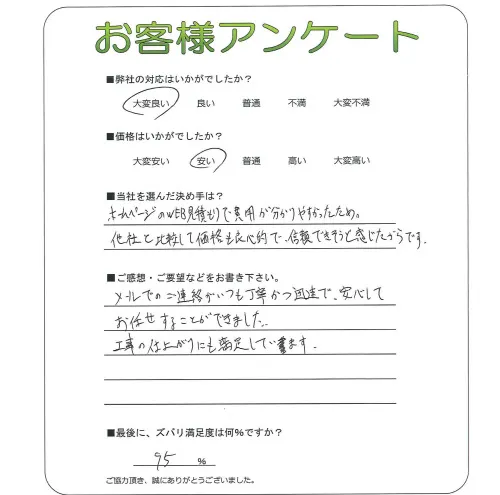 お客様アンケート
■弊社の対応はいかがでしたか？
大変良い 良い 普通 不満 大変不満
■価格はいかがでしたか？
大変安い 安い 普通 高い 大変高い
■当社を選んだ決め手は？
ホームページのWEB見積もりで費用が分かりやすかったため。
他社と比較して価格も良心的で、信頼できそうと感じたからです。
■ご感想・ご要望などをお書き下さい。
メールでのご連絡がいつも丁寧かつ迅速で、安心して
お任せすることができました。
工事の仕上がりにも満足しています。
■最後に、ズバリ満足度は何％ですか？
95 ％
ご協力頂き、誠にありがとうございました。